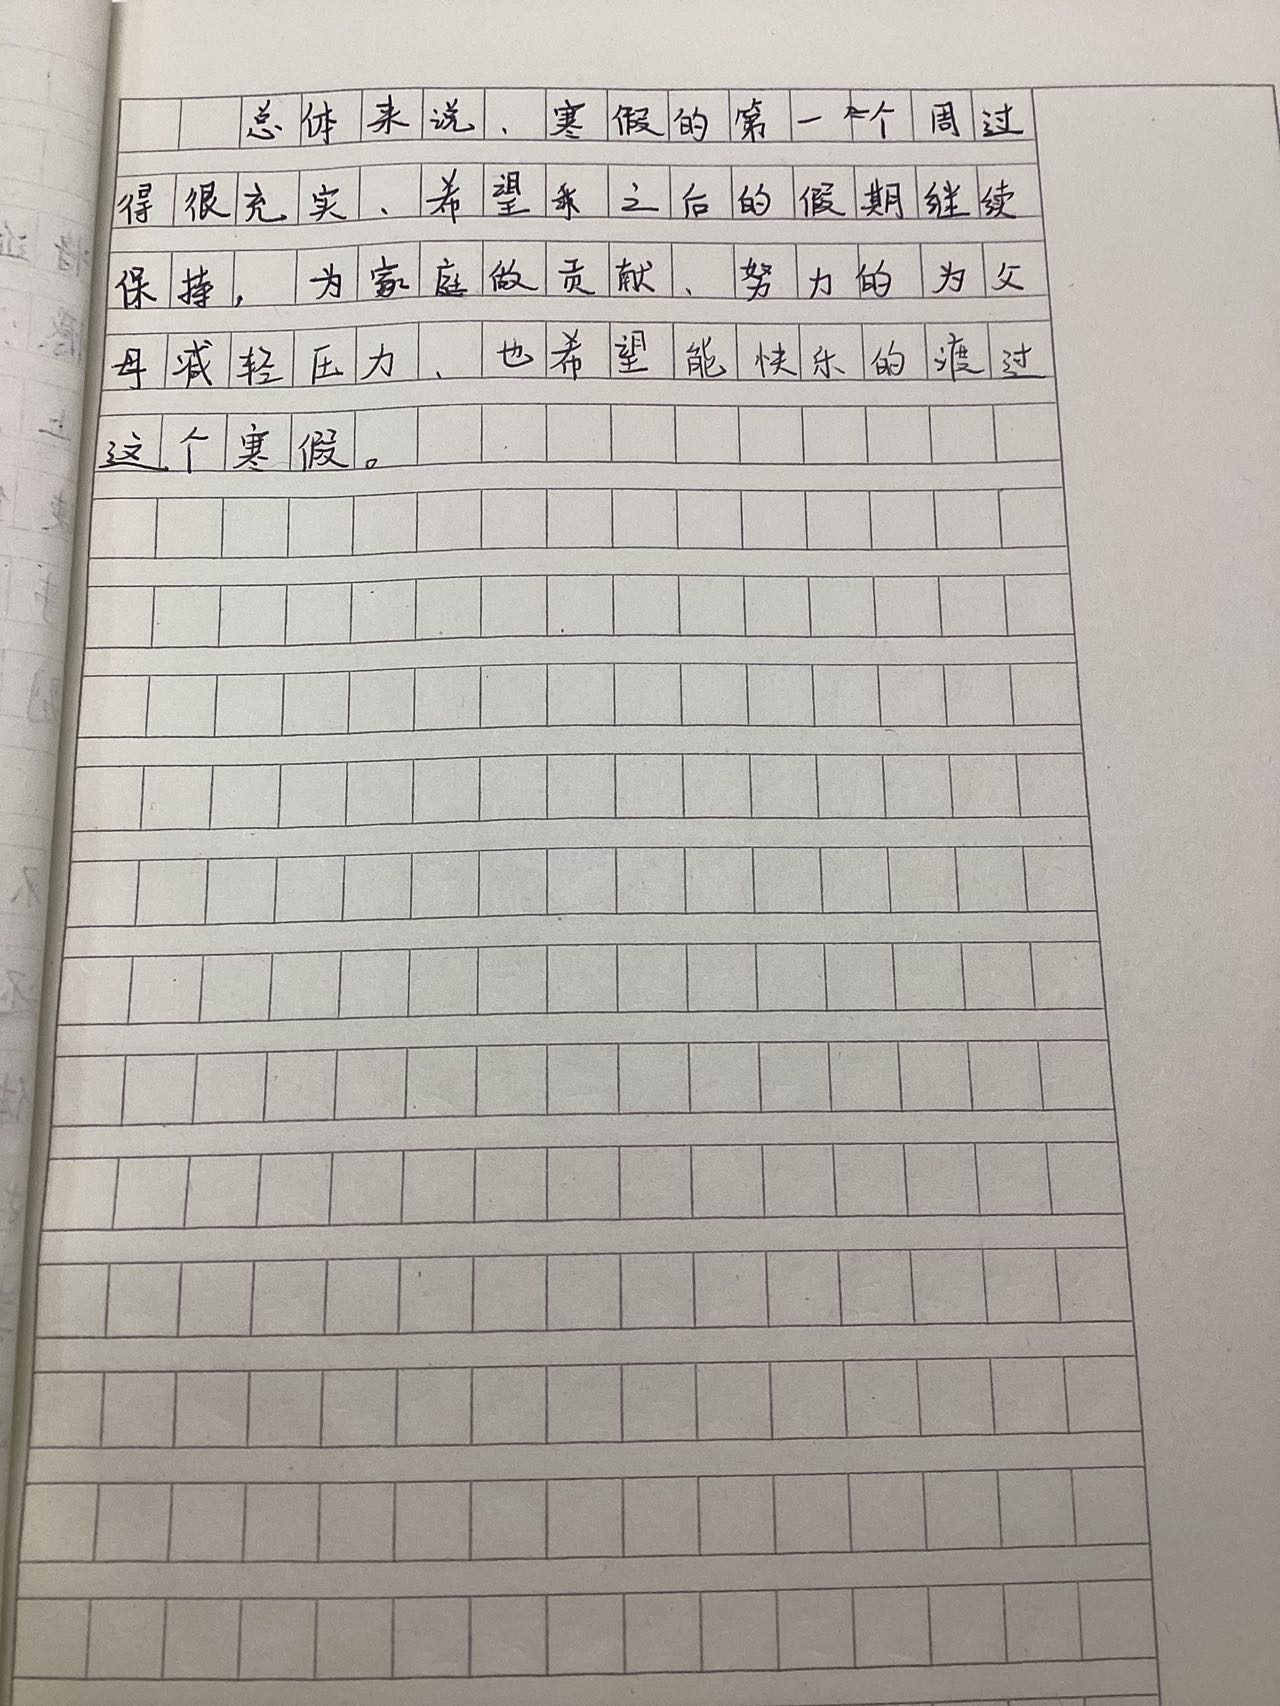 总体来说、寒假的第一个周过
得很充实、希望乘之后的假期继续
保持,为家庭做贡献、努力的为父
母减轻压力、也希望能快乐的渡过
这个寒假。